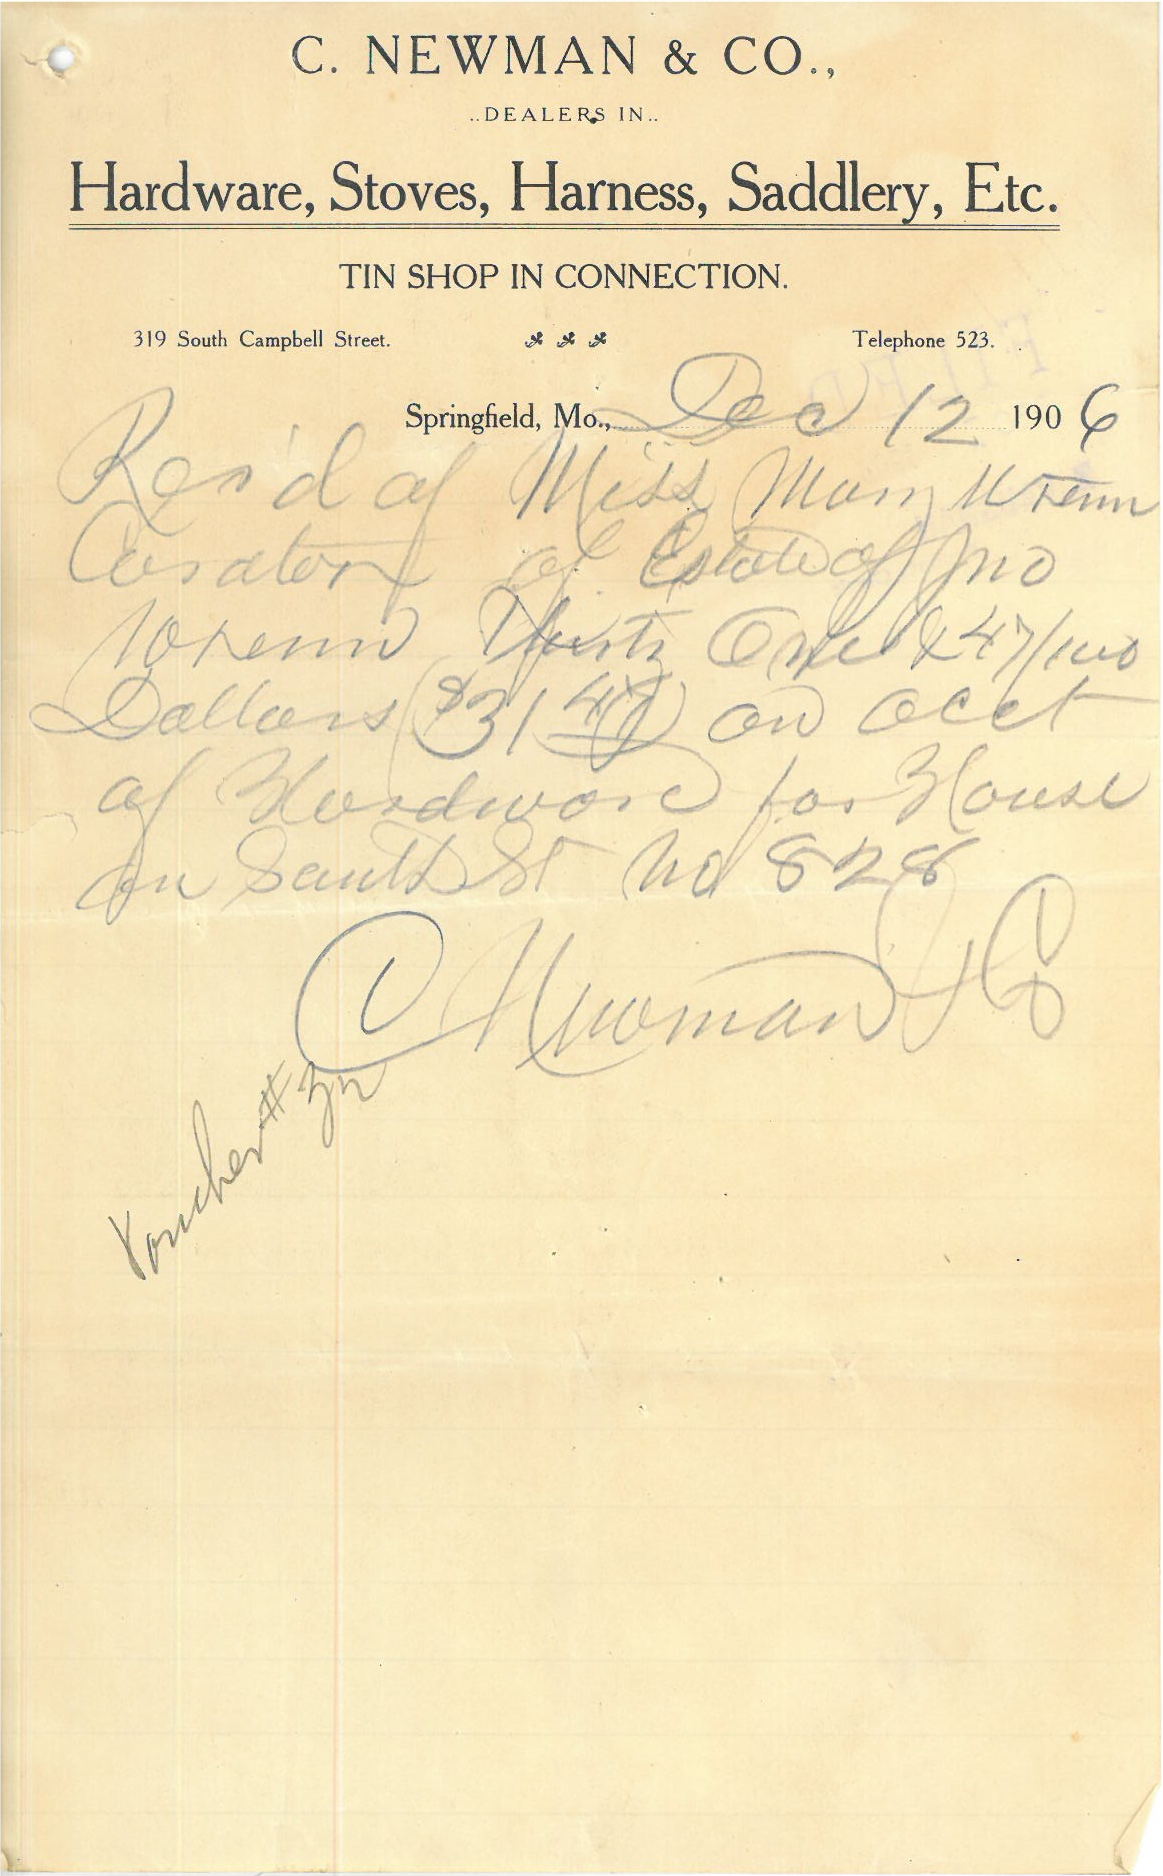 C. NEWMAN & CO.,
..DEALERS IN..
Hardware, Stoves, Harness, Saddlery, Etc.
TIN SHOP IN CONNECTION.
319 South Campbell Street. Telephone 523.
Springfield, Mo., Dec 12 1906
Rec'd of Miss Mary Wrenn
Curator of Estate of Jno
Wrenn Thirty One & 47/100
Dollars ($31 47) on acct
of Hardware for House
on South St No 828
C Newman & Co
Voucher # 32
FILED